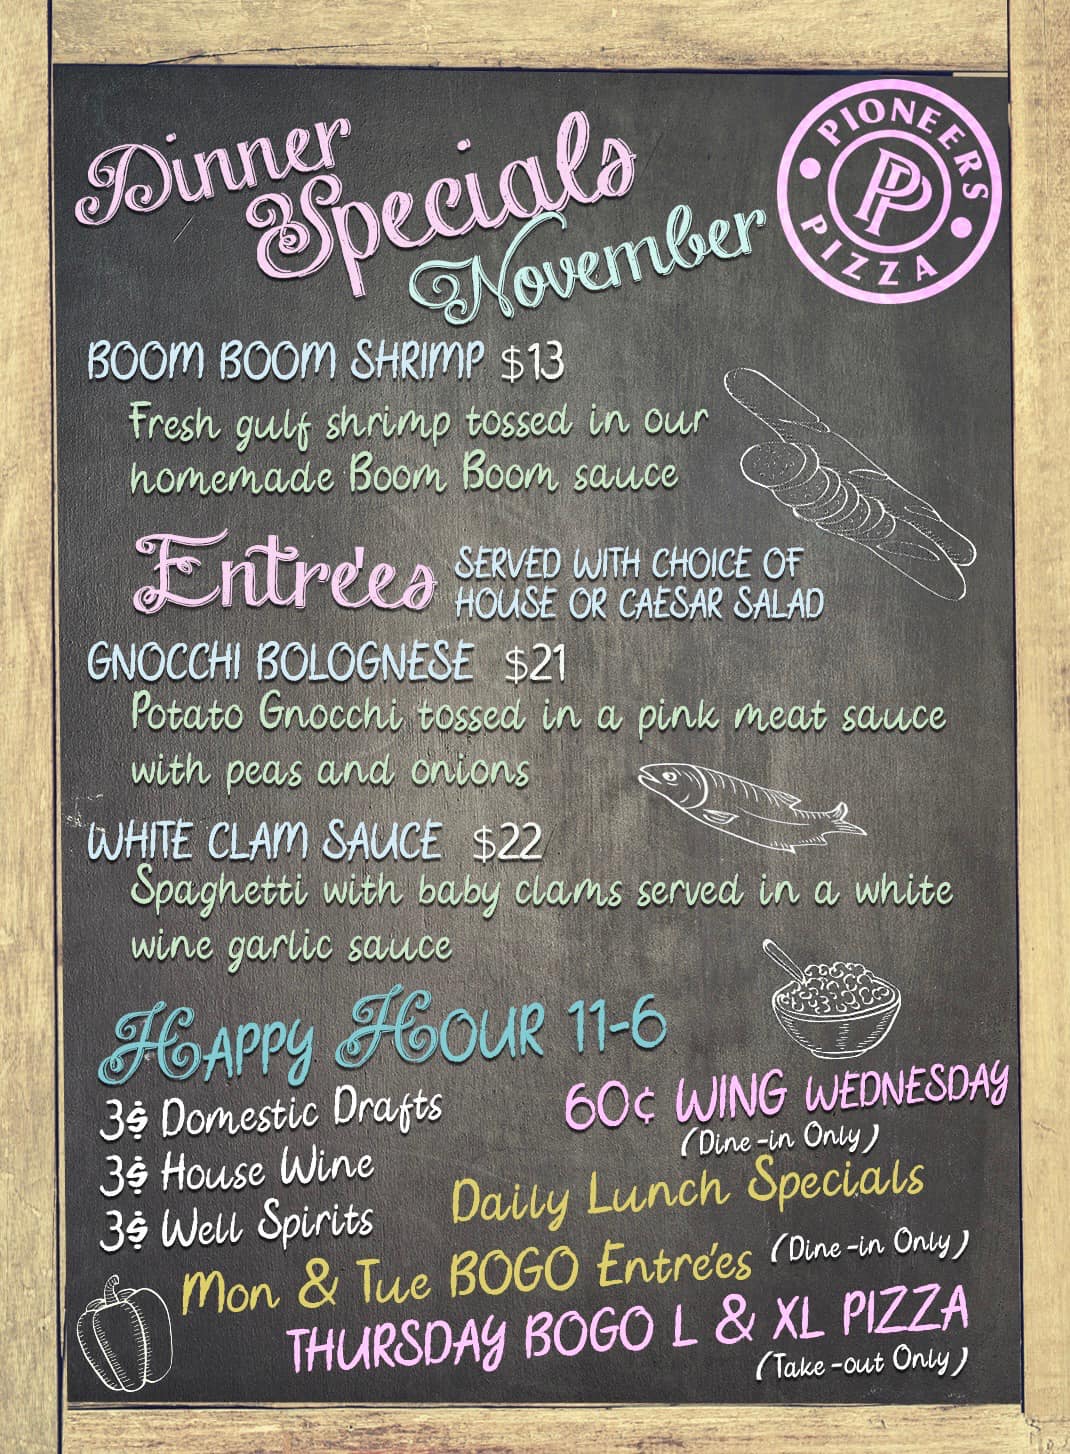 Dinner
Specials
November
PIONEERS
PP
PIZZA
BOOM BOOM SHRIMP $13
Fresh gulf shrimp tossed in our
homemade Boom Boom sauce
Entrées SERVED WITH CHOICE OF
HOUSE OR CAESAR SALAD
GNOCCHI BOLOGNESE $21
Potato Gnocchi tossed in a pink meat sauce
with peas and onions
WHITE CLAM SAUCE $22
Spaghetti with baby clams served in a white
wine garlic sauce
HAPPY HOUR 11-6
3$ Domestic Drafts
3$ House Wine
3$ Well Spirits
60¢ WING WEDNESDAY
(Dine-in Only)
Daily Lunch Specials
Mon & Tue BOGO Entrées (Dine-in Only)
THURSDAY BOGO L & XL PIZZA
(Take-out Only)